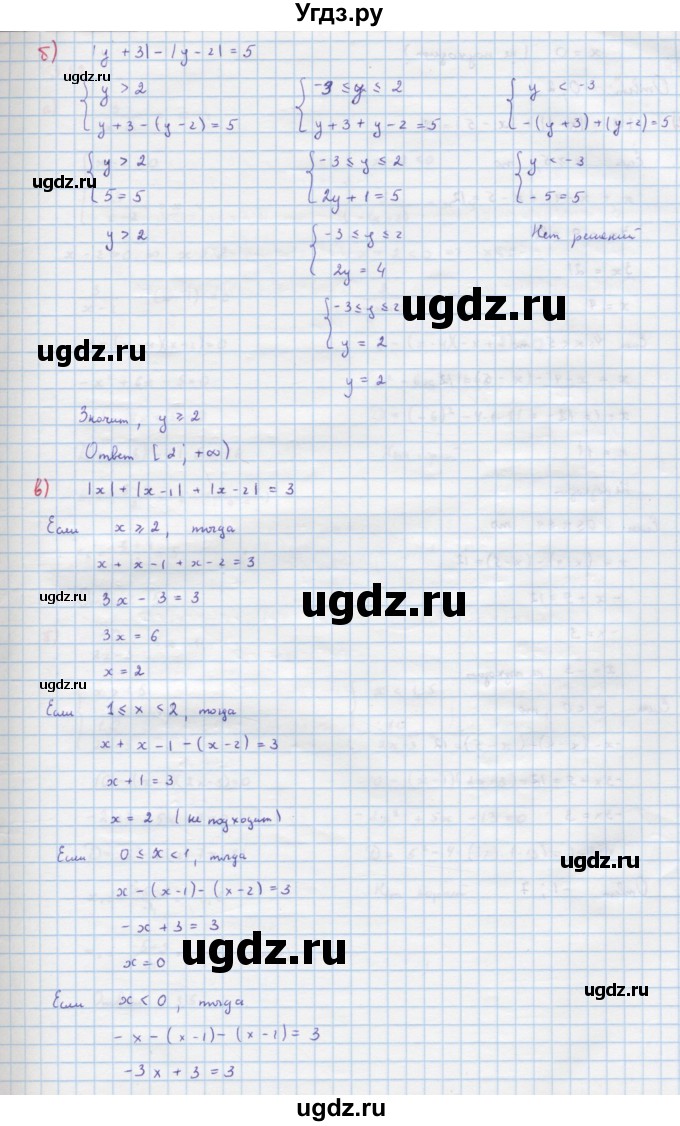 Угдз.ру
б) |y + 3| - |y - 2| = 5
ugdz.ru
{ y > 2
y + 3 - (y - 2) = 5
{ -3 ≤ y ≤ 2
y + 3 + y - 2 = 5
{ y < -3
-(y + 3) + (y - 2) = 5
ugdz.ru
{ y > 2
5 = 5
{ -3 ≤ y ≤ 2
2y + 1 = 5
{ y < -3
-5 = 5
y > 2
{ -3 ≤ y ≤ 2
2y = 4
Нет решений
ugdz.ru
{ -3 ≤ y ≤ 2
y = 2
ugdz.ru
y = 2
Значит, y ≥ 2
Ответ [2; +∞)
в) |x| + |x - 1| + |x - 2| = 3
Если x ≥ 2, тогда
x + x - 1 + x - 2 = 3
ugdz.ru
3x - 3 = 3
ugdz.ru
3x = 6
x = 2
ugdz.ru
Если 1 ≤ x < 2, тогда
x + x - 1 - (x - 2) = 3
x + 1 = 3
x = 2 (не подходит)
Если 0 ≤ x < 1, тогда
ugdz.ru
x - (x - 1) - (x - 2) = 3
-x + 3 = 3
ugdz.ru
x = 0
ugdz.ru
Если x < 0, тогда
-x - (x - 1) - (x - 2) = 3
-3x + 3 = 3
ugdz.ru